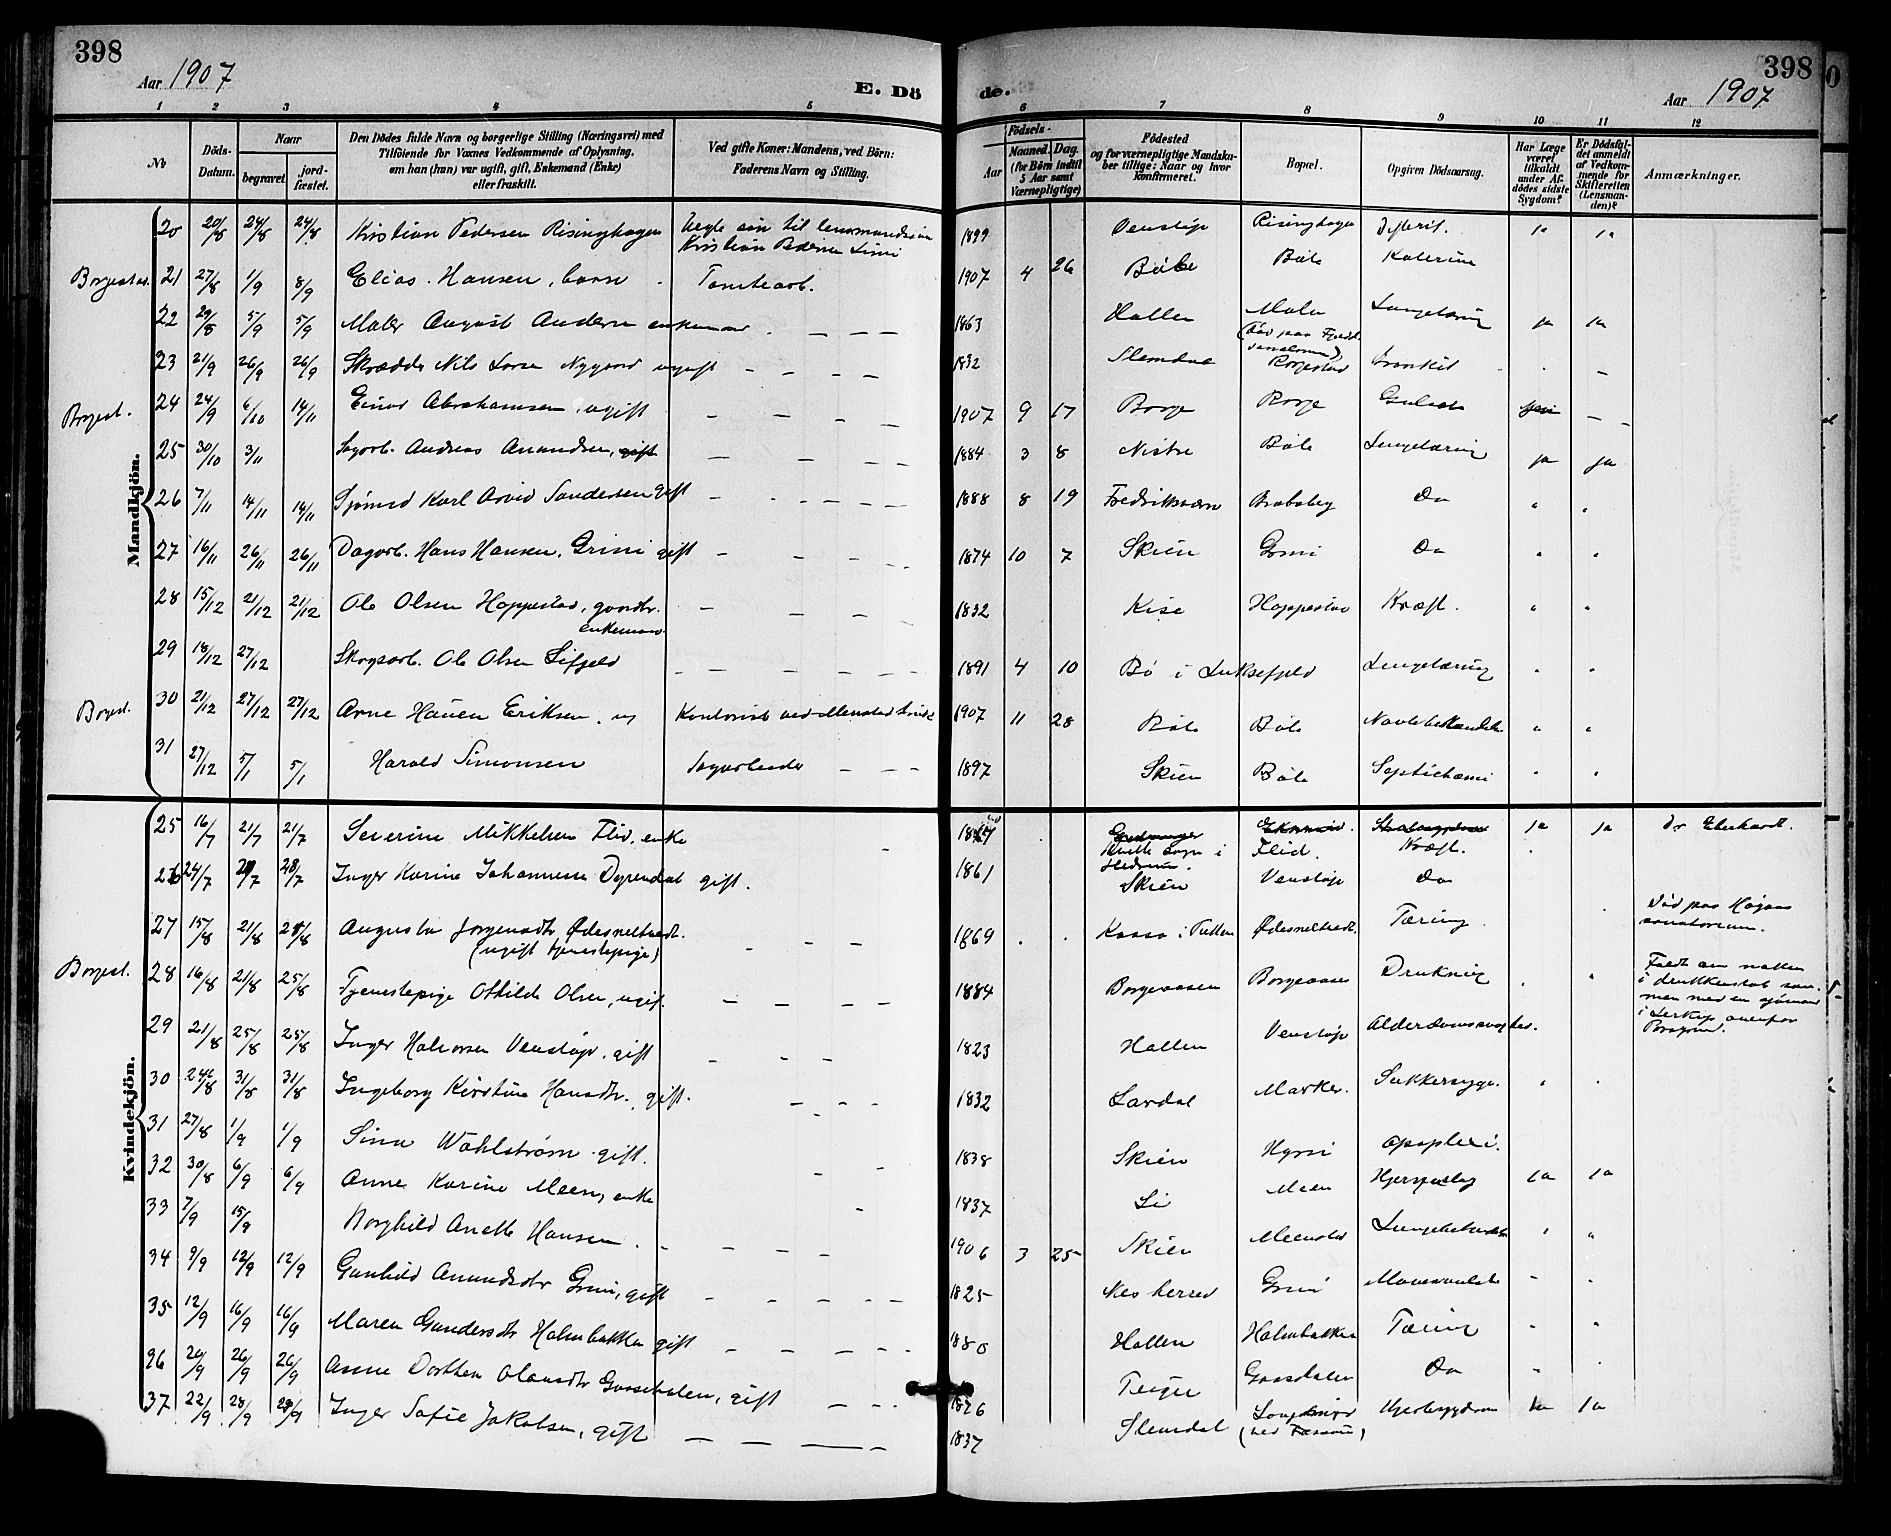 398
Aar 1907
E. Dö
de.
Aar 1907
398
1 2 3 4 5 6 7 8 9 10 11 12
No
Döds-Datum.
Naar
begravet
jordfæstet.
Den Dödes fulde Navn og borgerlige Stilling (Næringsvei) med
Tilföiende for Voxnes Vedkommende af Oplysning,
om han (hun) var ugift, gift, Enkemand (Enke)
eller fraskilt.
Ved gifte Koner: Mandens, ved Börn:
Faderens Navn og Stilling.
Födsels-
Aar
Maaned. Dag.
(for Börn indtil
5 Aar samt
Værnepligtige)
Födested
og for værnepligtige Mandska-
ber tillige: Naar og hvor
konfirmeret.
Bopæl.
Opgiven Dödsaarsag.
Har Læge
været
tilkaldt
under Af-
dödes sidste
Sygdom?
Er Dödsfal-
det anmeldt
af Vedkom-
mende for
Skifteretten
(Lensman-
den)?
Anmærkninger.
Mandkjön.
20 20/8 24/8 24/8 Kristian Pedersen Risinghagen Uegte søn til 1899 Venstøp Risinghagen Difterit. ja ja
Kristian Pedersen
21 27/8 1/9 8/9 Elias Hansen, barn Tomtearb. 1907 4 26 Bøle Bøle Kolerine
22 29/8 5/9 5/9 Maler August Andersen enkemand — — — 1863 Hollen Lungetæring ja ja
23 21/9 26/9 26/9 Skrædder Nils Larsen Nygaard ugift — — — — 1832 Slemdal Borgestad Bronkit
Borgest. 24 24/9 6/10 14/11 Einar Abrahamsen, ugift — — — — 1907 9 17 Borge Borge Gulsot —
25 30/10 3/11 Andreas Amundsen, gift — — — — 1884 3 8 Bøle Lungetæring ja ja
26 7/11 14/11 14/11 Sjømd Karl Arvid Sandersen gift — — — — 1888 8 19 Fredriksværn Bratsberg Do " "
27 16/11 26/11 26/11 Dagarb. Hans Hansen, Grini gift — — — — 1874 10 7 Skien Grini Do " "
28 15/12 21/12 21/12 Ole Olsen Hoppestad, gaardbr. — — — — 1832 Kise Hoppestad Kræft. " "
enkemand
29 18/12 27/12 Skogsarb. Ole Olsen Lifjeld — — — — 1891 4 10 Bø i Luksefjeld Lungetæring " "
Borgest. 30 21/12 27/12 27/12 Arne Hauen Eriksen, ug Kontorist ved Menstad bruk 1907 11 28 Bøle Bøle " "
31 27/12 5/1 5/1 Harald Simonsen Sagarbeider — — — 1897 Skien Bøle Septichæmi " "
Kvindekjön.
25 16/7 21/7 21/7 Severine Mikkelsen Flid, enke Flid. Kræft. ja ja Dr Eberhardt.
26 24/7 28/7 Inger Karine Johannesen Dyrendal gift. 1861 Skien Venstøp Do
27 15/8 21/8 25/8 Augusta Jørgensdtr Ødesneltvedt. — — — 1869 Ødesneltvedt. Tæring Død paa
(ugift tjenestepige) sanatorium.
Borgest. 28 16/8 21/8 25/8 Tjenestepige Othilde Olsen, ugift. — — — — 1884 Borgeaasen Borgeaasen Drukning " Faldt om natten
i drukkenskab sam-
men med en sjømand
29 21/8 25/8 25/8 Inger Halvorsen Venstøp, gift — — — 1823 Hollen Venstøp Alderdomssvaghed.
30 24/8 31/8 31/8 Ingeborg Kirstine Hansdtr., gift. — — — 1832 Lardal Marker. Sukkersyge. " "
31 27/8 1/9 1/9 Sina Wahlstrøm gift. — — 1838 Skien Hyni Apoplexi.
32 30/8 6/9 6/9 Anne Karine Meen, enke — — 1837 Li Meen Hjerteslag ja ja
33 7/9 15/9 Borghild Anette Hansen — — — — 1906 3 25 Skien Menstad Lungebetændelse " "
34 9/9 12/9 12/9 Gunhild Amundsdtr Grini, gift — — — — — 1825 Nes herred Grini " "
35 12/9 16/9 16/9 Maren Gundersdtr Holmbakken gift — — — — 1880 Hollen Holmbakken Tæring " "
36 20/9 26/9 26/9 Anne Dorthea Olausdtr, gift — — — 1826 Do "
37 22/9 28/9 29/9 Inger Sofie Jakobsen, gift — — — — 1837 Slemdal Hjertesygdom ja ja